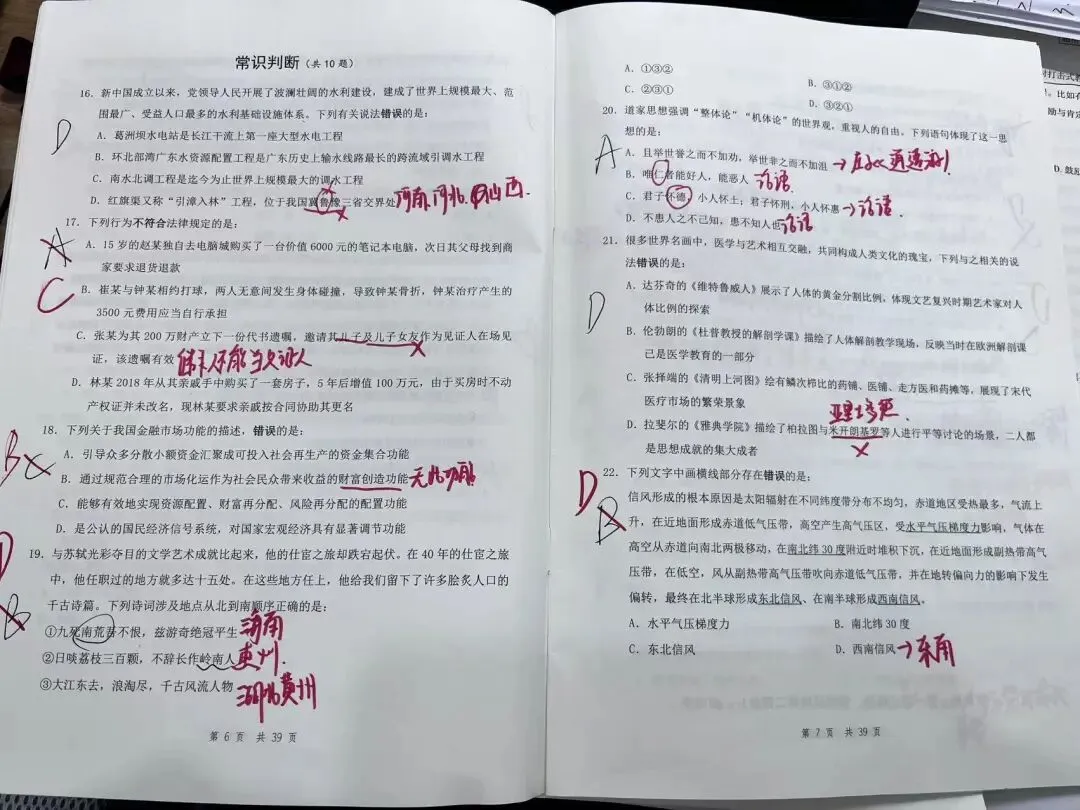 常识判断（共 10 题）
16．新中国成立以来，党领导人民开展了波澜壮阔的水利建设，建成了世界上规模最大、范
围最广、受益人口最多的水利基础设施体系。下列有关说法错误的是：
D
A．葛洲坝水电站是长江干流上第一座大型水电工程
B．环北部湾广东水资源配置工程是广东历史上输水线路最长的跨流域引调水工程
C．南水北调工程是迄今为止世界上规模最大的调水工程
D．红旗渠又称“引漳入林”工程，位于我国冀鲁豫三省交界处 河南、河北、山西.
17．下列行为不符合法律规定的是：
A
A．15 岁的赵某独自去电脑城购买了一台价值 6000 元的笔记本电脑，次日其父母找到商
家要求退货退款
C
B．崔某与钟某相约打球，两人无意间发生身体碰撞，导致钟某骨折，钟某治疗产生的
3500 元费用应当自行承担
C．张某为其 200 万财产立下一份代书遗嘱，邀请其儿子及儿子女友作为见证人在场见
证，该遗嘱有效
D．林某 2018 年从其亲戚手中购买了一套房子，5 年后增值 100 万元，由于买房时不动
产权证并未改名，现林某要求亲戚按合同协助其更名
18．下列关于我国金融市场功能的描述，错误的是：
B
A．引导众多分散小额资金汇聚成可投入社会再生产的资金集合功能
B．通过规范合理的市场化运作为社会民众带来收益的财富创造功能 无此功能
C．能够有效地实现资源配置、财富再分配、风险再分配的配置功能
D．是公认的国民经济信号系统，对国家宏观经济具有显著调节功能
D
19．与苏轼光彩夺目的文学艺术成就比起来，他的仕宦之旅却跌宕起伏。在 40 年的仕宦之旅
中，他任职过的地方就多达十五处。在这些地方任上，他给我们留下了许多脍炙人口的
B
千古诗篇。下列诗词涉及地点从北到南顺序正确的是：
①九死南荒吾不恨，兹游奇绝冠平生 海南
②日啖荔枝三百颗，不辞长作岭南人 惠州.
③大江东去，浪淘尽，千古风流人物 湖北黄州
第 6 页 共 39 页
A．①③②
B．③①②
C．②③①
D．③②①
20．道家思想强调“整体论”“机体论”的世界观，重视人的自由。下列语句体现了这一思
想的是：
A
A．且举世誉之而不加劝，举世非之而不加沮 → 庄子《逍遥游》
B．唯仁者能好人，能恶人 论语.
C．君子怀德，小人怀土；君子怀刑，小人怀惠 → 论语.
D．不患人之不己知，患不知人也 论语
21．很多世界名画中，医学与艺术相互交融，共同构成人类文化的瑰宝，下列与之相关的说
法错误的是：
D
A．达芬奇的《维特鲁威人》展示了人体的黄金分割比例，体现文艺复兴时期艺术家对人
体比例的探索
B．伦勃朗的《杜普教授的解剖学课》描绘了人体解剖教学现场，反映当时在欧洲解剖课
已是医学教育的一部分
C．张择端的《清明上河图》绘有鳞次栉比的药铺、医铺、走方医和药摊等，展现了宋代
医疗市场的繁荣景象
亚里士多德.
D．拉斐尔的《雅典学院》描绘了柏拉图与米开朗基罗等人进行平等讨论的场景，二人都
是思想成就的集大成者
22．下列文字中画横线部分存在错误的是：
D
B
信风形成的根本原因是太阳辐射在不同纬度带分布不均匀，赤道地区受热最多，气流上
升，在近地面形成赤道低气压带，高空产生高气压区，受水平气压梯度力影响，气体在
高空从赤道向南北两极移动，在南北纬 30 度附近时堆积下沉，在近地面形成副热带高气
压带，在低空，风从副热带高气压带吹向赤道低气压带，并在地转偏向力的影响下发生
偏转，最终在北半球形成东北信风、在南半球形成西南信风。
A．水平气压梯度力
B．南北纬 30 度
C．东北信风
D．西南信风 → 东南
第 7 页 共 39 页